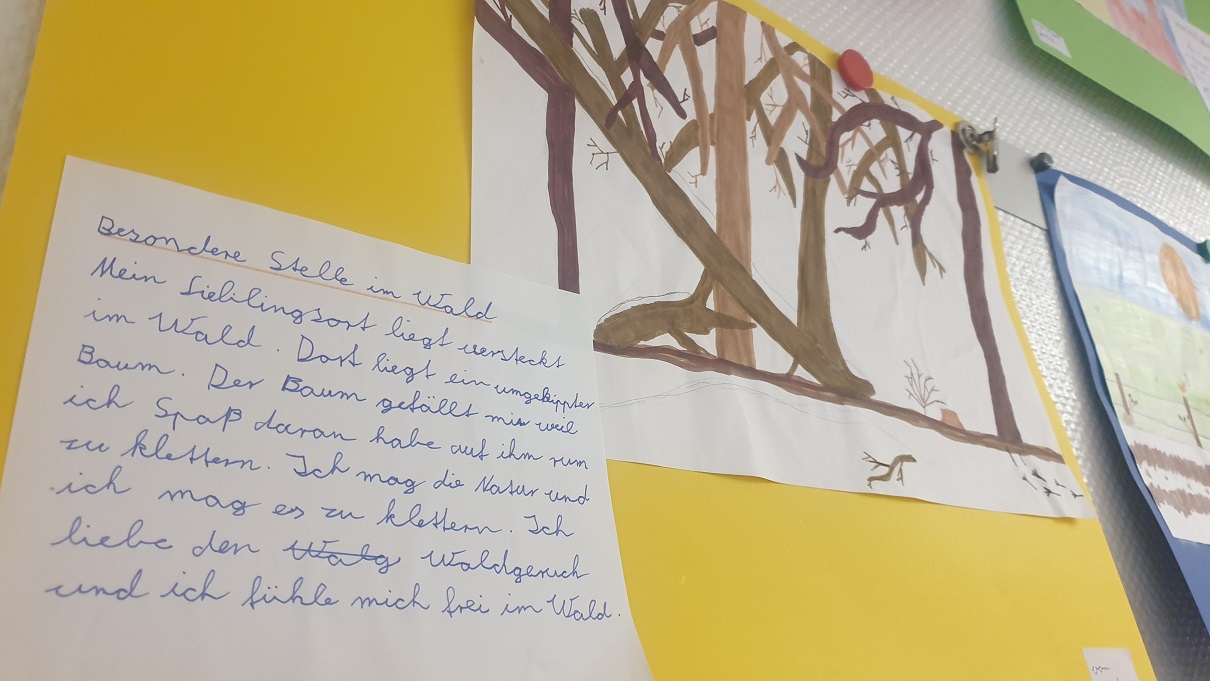 Besondere Stelle im Wald
Mein Lieblingsort liegt versteckt
im Wald. Dort liegt ein umgekippter
Baum. Der Baum gefällt mir weil
ich Spaß daran habe auf ihm rum
zu klettern. Ich mag die Natur und
ich mag es zu klettern. Ich
liebe den Walg Waldgeruch
und ich fühle mich frei im Wald.